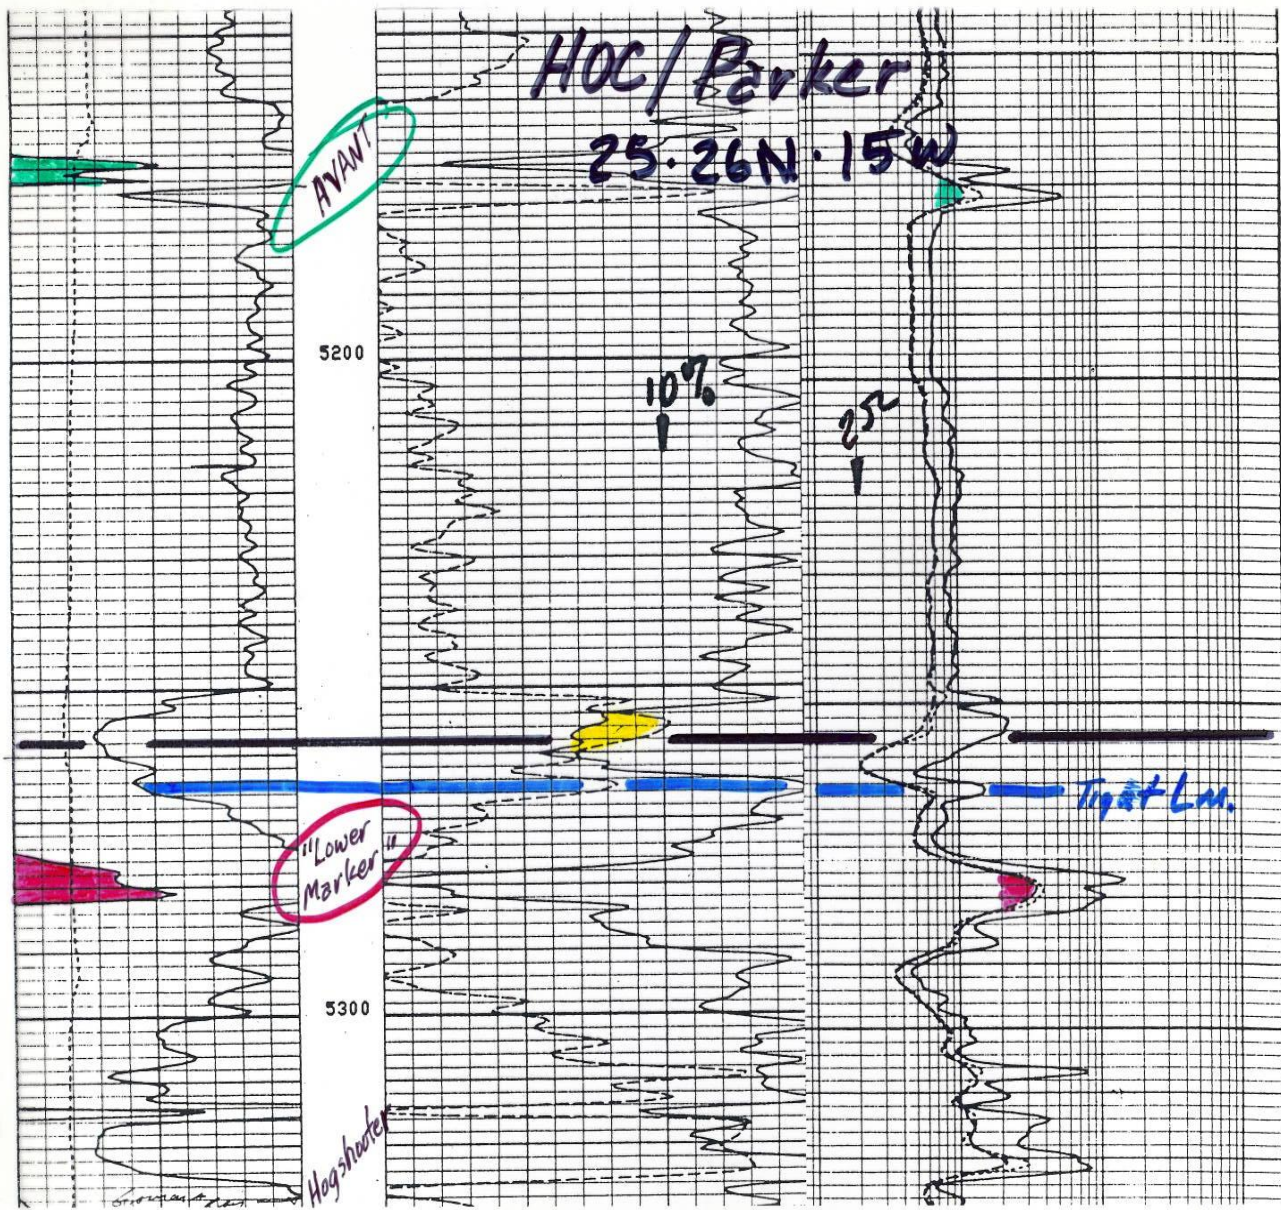 HOC/Parker
25·26N·15W
AVANT
5200
10%
2Ω
Tight Lm.
"Lower
Marker"
5300
Hogshooter